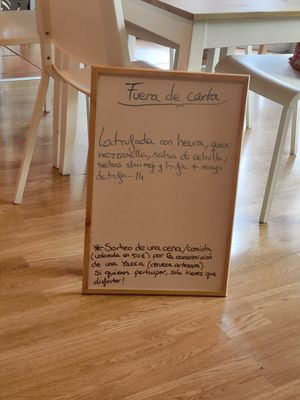 Fuera de carta
La trufada con heura, queso
mozzarella, salsa de cebolla,
setas shiitake y trufa + mayo
de trufa...14
* Sorteo de una cena/comida
(valorada en 50€) por la consumición
de una Yacca (cerveza artesana)
Si quieres participar, solo tienes que
disfrutar!